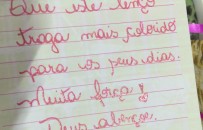 Que este lenço
traga mais colorido
para os seus dias.
Muita força!
Deus abençoe.